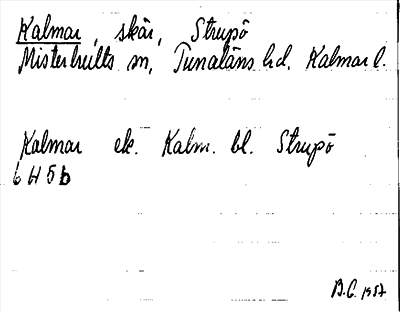 Kalmar, skär, Strupö
Misterhults sn, Tunaläns hd. Kalmar l.
Kalmar ek. Kalm. bl. Strupö
6H5b
B.C. 1957